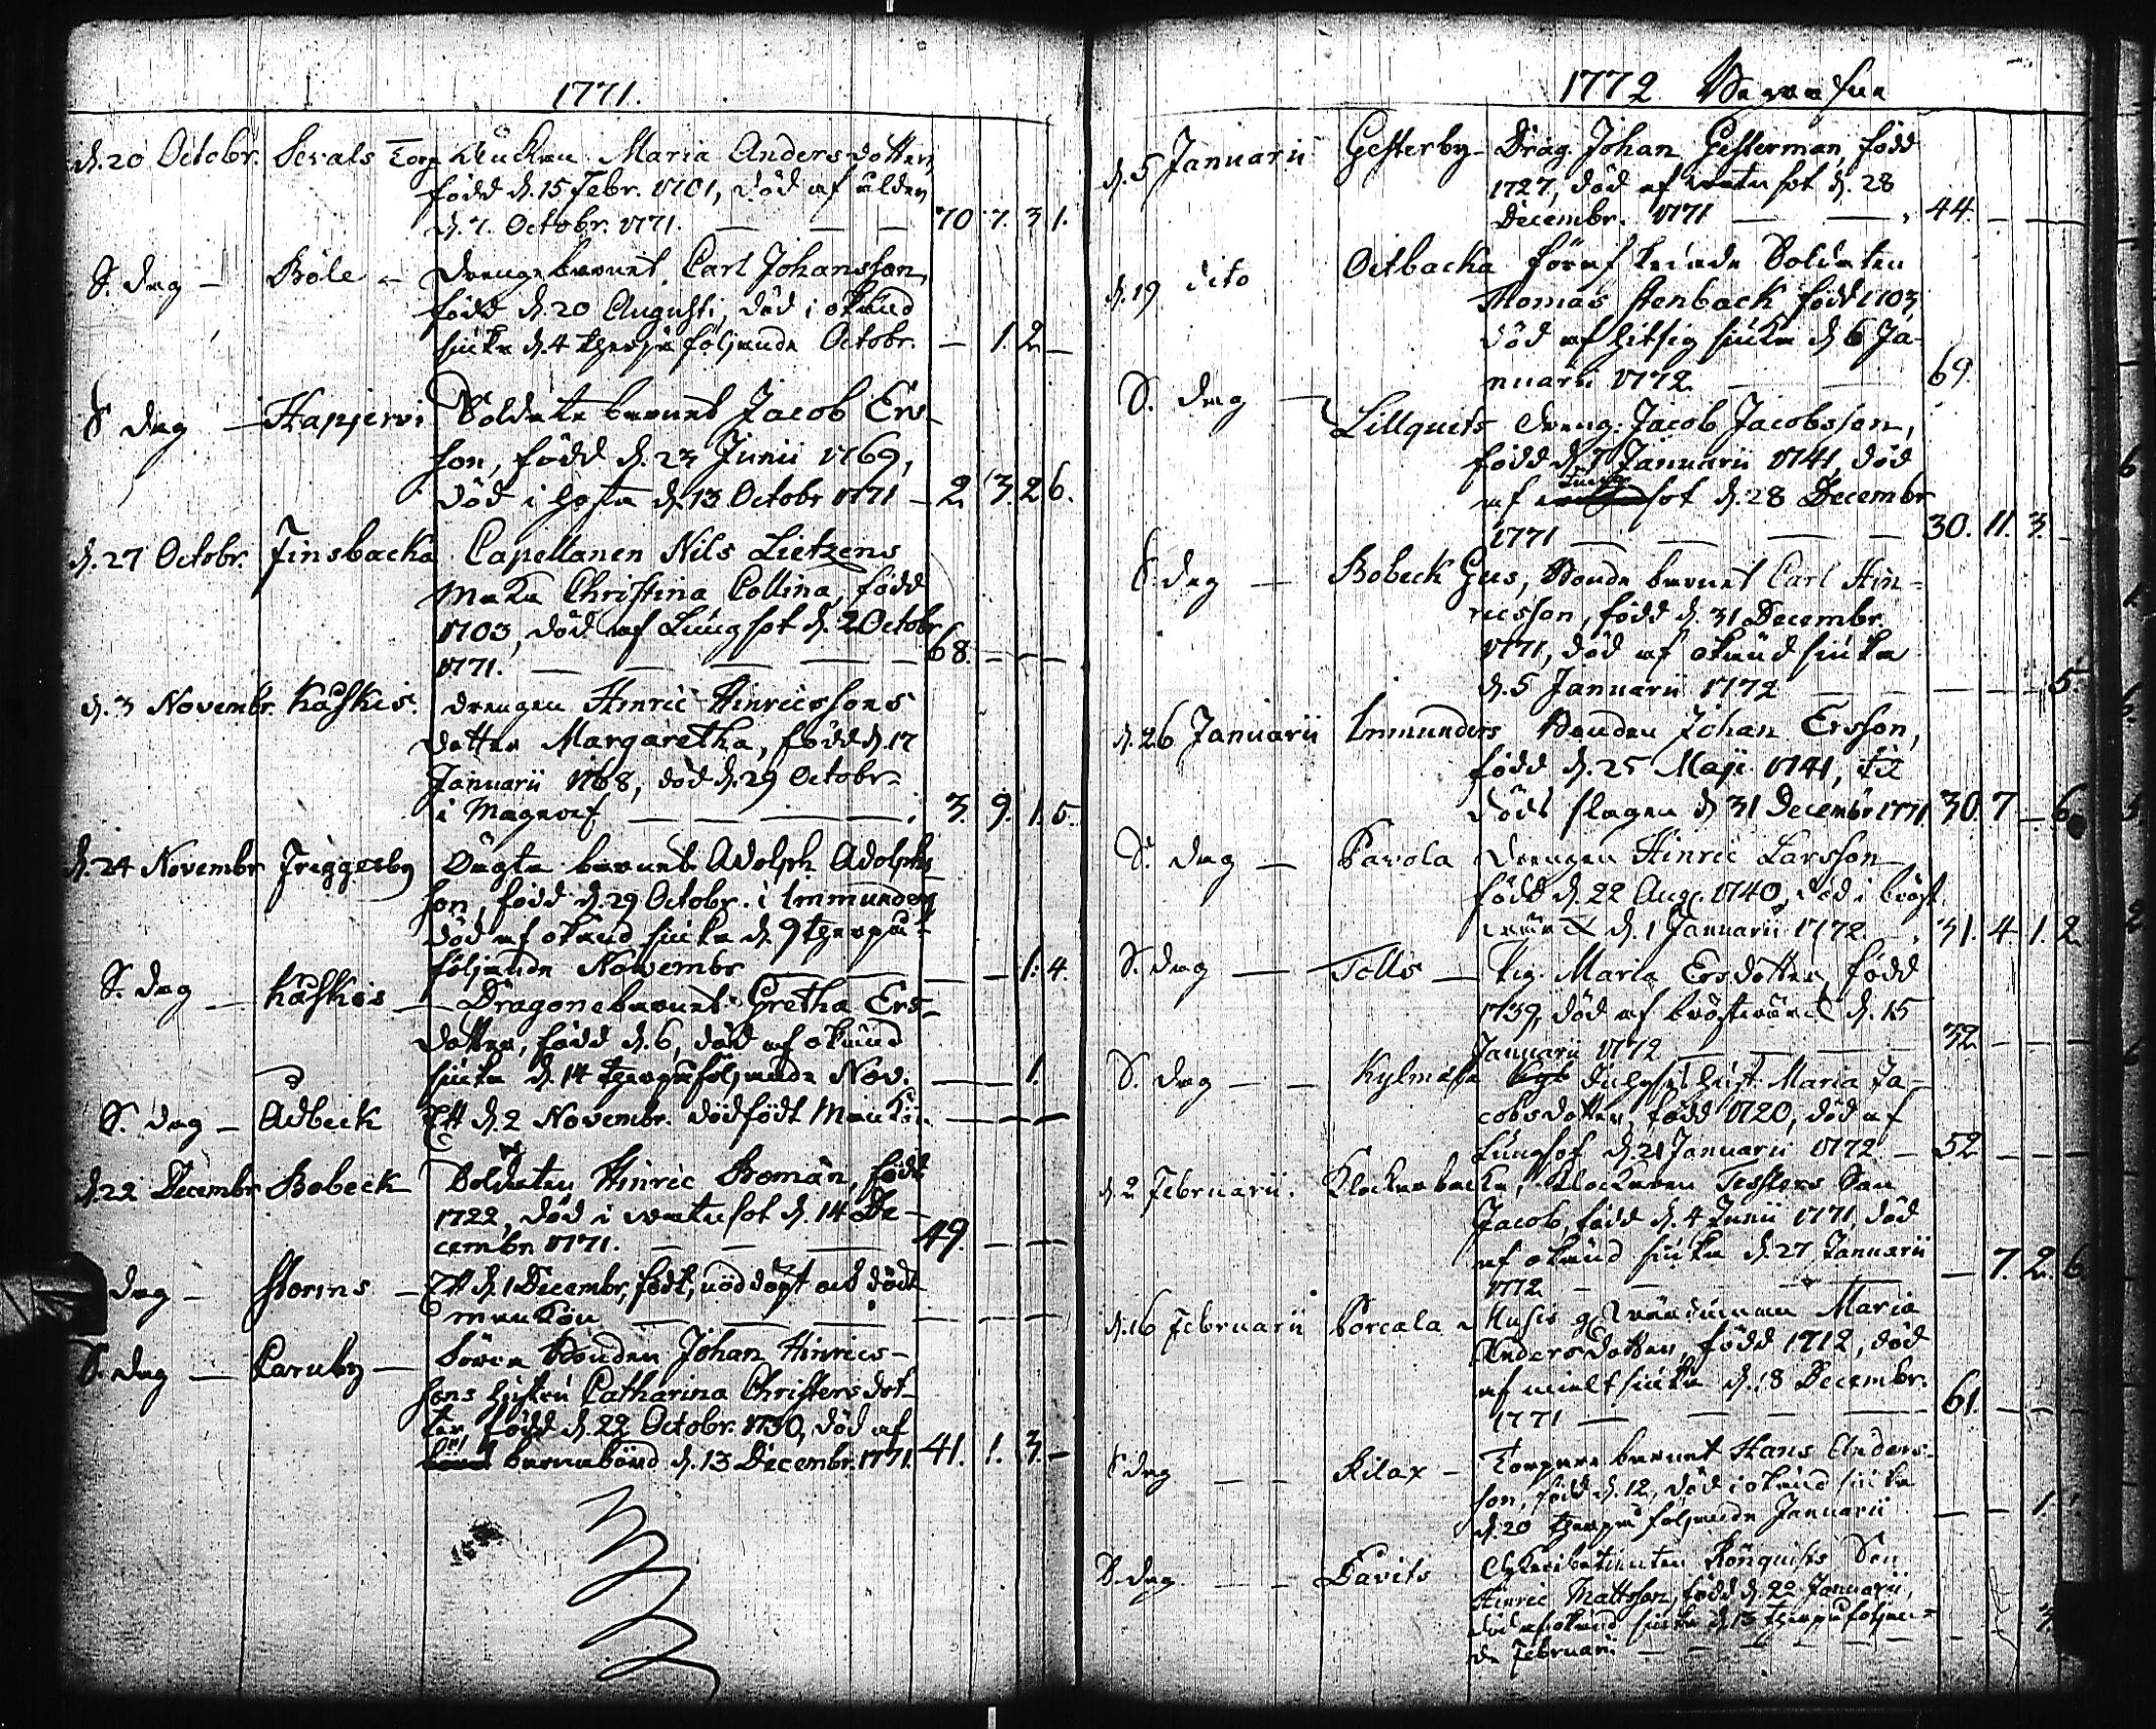 1771.
d. 20 Octobr. Sevals Torp Änckan Maria Andersdotter,
född d. 15 Febr. 1701, död af ålder
d. 7. Octobr. 1771. — — — 70. 7. 3. 1.
S. dag — Böle — Drängebarnet Carl Johansson
född d. 20 Augusti, död i okänd
siuka d. 4 therpå följande Octobr. — 1. 2. —
S. dag — Hapjervi Soldate barnet Jacob Ers-
son, född d. 23 Junii 1769,
död i hosta d. 13 Octobr 1771 — 2. 3. 2. 6.
d. 27 Octobr. Finsbacka Capellanen Nils Lietzens
Maka Christina Collina, född
1703, död af Lungsot d. 2 Octobr
1771. — — — — 68. — — —
d. 3 Novembr. Kåhskis. Drengen Hinric Hinricssons
dotter Margaretha, född d. 17
Januarii 1768, död d. 29 Octobr.
i Magref — — — 3. 9. 1. 5.
d. 24 Novembr Friggesby Oägta barnet Adolph Adolphs
son, född d. 29 Octobr. i Immunders
död af okänd siuka d. 9 therpå
följande Novembr — — — 1. 4.
S. dag — Kåhskis — Dragonebarnet Gretha Ers-
dotter, född d. 6, död af okänd
siuka d. 14 therpå följande Nov. — — 1.
S. dag —Ådbeck Ett d. 2 Novembr. dödfödt Mankön. — — — —
d. 22 Decembr Bobeck Soldaten Hinric Boman, född
1722, död i watusot d. 14 De-
cembr 1771. — — — 49. — — —
dag — Storms — Ett d. 1 Decembr, födt, nöddöpt och dödt
mankön — — — — — — —
S. dag — Caruby — Bonden Johan Hinrics-
sons hustru Catharina Christersdot-
ter, född d. 22 Octobr. 1730, död af
barnabörd d. 13 Decembr. 1771. 41. 1. 3. —
1772
d. 5 Januarii Gesterby — Drag. Johan Gesterman, född
1727, död af watusot d. 28
Decembr. 1771 — — 44. — —
d. 19 dito Oitbacka förafskedade Soldaten
Thomas Stenback född 1703,
död af hitsig siuka d. 6 Ja-
nuarii 1772. — — 69.
S. dag — Lillquets Dreng. Jacob Jacobsson,
född d. 7 Januarii 1741, död
af Lungsot d. 28 Decembr
1771 — — — — 30. 11. 3. —
S. dag — Bobeck Gus, Bonde barnet Carl Hin-
ricsson, född d. 31 Decembr.
1771, död af okänd siuka
d. 5 Januarii 1772 — — — — 5.
d. 26 Januarii Immunders Bonden Johan Ersson,
född d. 25 Maji 1741, til
döds slagen d. 31 Decembr 1771 30. 7 — 6
S. dag — Pavola Drengen Hinric Larsson
född d. 22 Aug. 1740, död i bröst
wärck d. 1 Januarii 1772. — 31. 4. 1. 2.
S. dag — Tolls — Pig. Maria Ersdotter, född
1739, död af bröstwärck d. 15
Januarii 1772 — — — 32 — — —
S. dag — — Kylmälä Maria Ja-
cobsdotter, född 1720, död af
Lungsot d. 21 Januarii 1772 — 52 — — —
d. 2 Februarii. Klockarbacka, Klockaren Tesslers Son
Jacob, född d. 4 Junii 1771, död
af okänd siuka d. 27 Januarii
1772 — — — 7. 2. 6
d. 16 Februarii Porcala — Maria
Andersdotter, född 1712, död
af mieltsiuka d. 18 Decembr.
1771 — — — — 61. — — —
S. dag — — Kilax — Torpare barnet Hans Anders-
son, född d. 12, död i okänd siuka
d. 20 therpå följande Januarii — — 1.
S. dag — — Davits Rönquists Son
Hinric Mattsson, född d. 22 Januarii,
död af okänd siuka d. 13 therpå följan-
de Februari — — — — — 3.